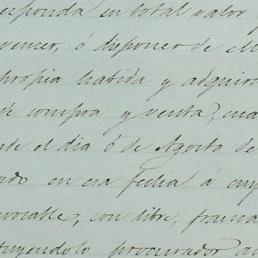 esponda en total valor y
vencer, ó disponer de el
propia habida y adquiri
de compra y venta, cua
de el dia 6 de Agosto de
ndo en esa fecha, á cuy
vocable, con libre, franca
tuyendolo procurador a